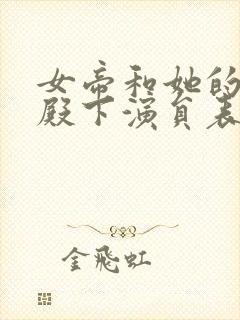 女帝和她的
殿下演员表
金飛虹